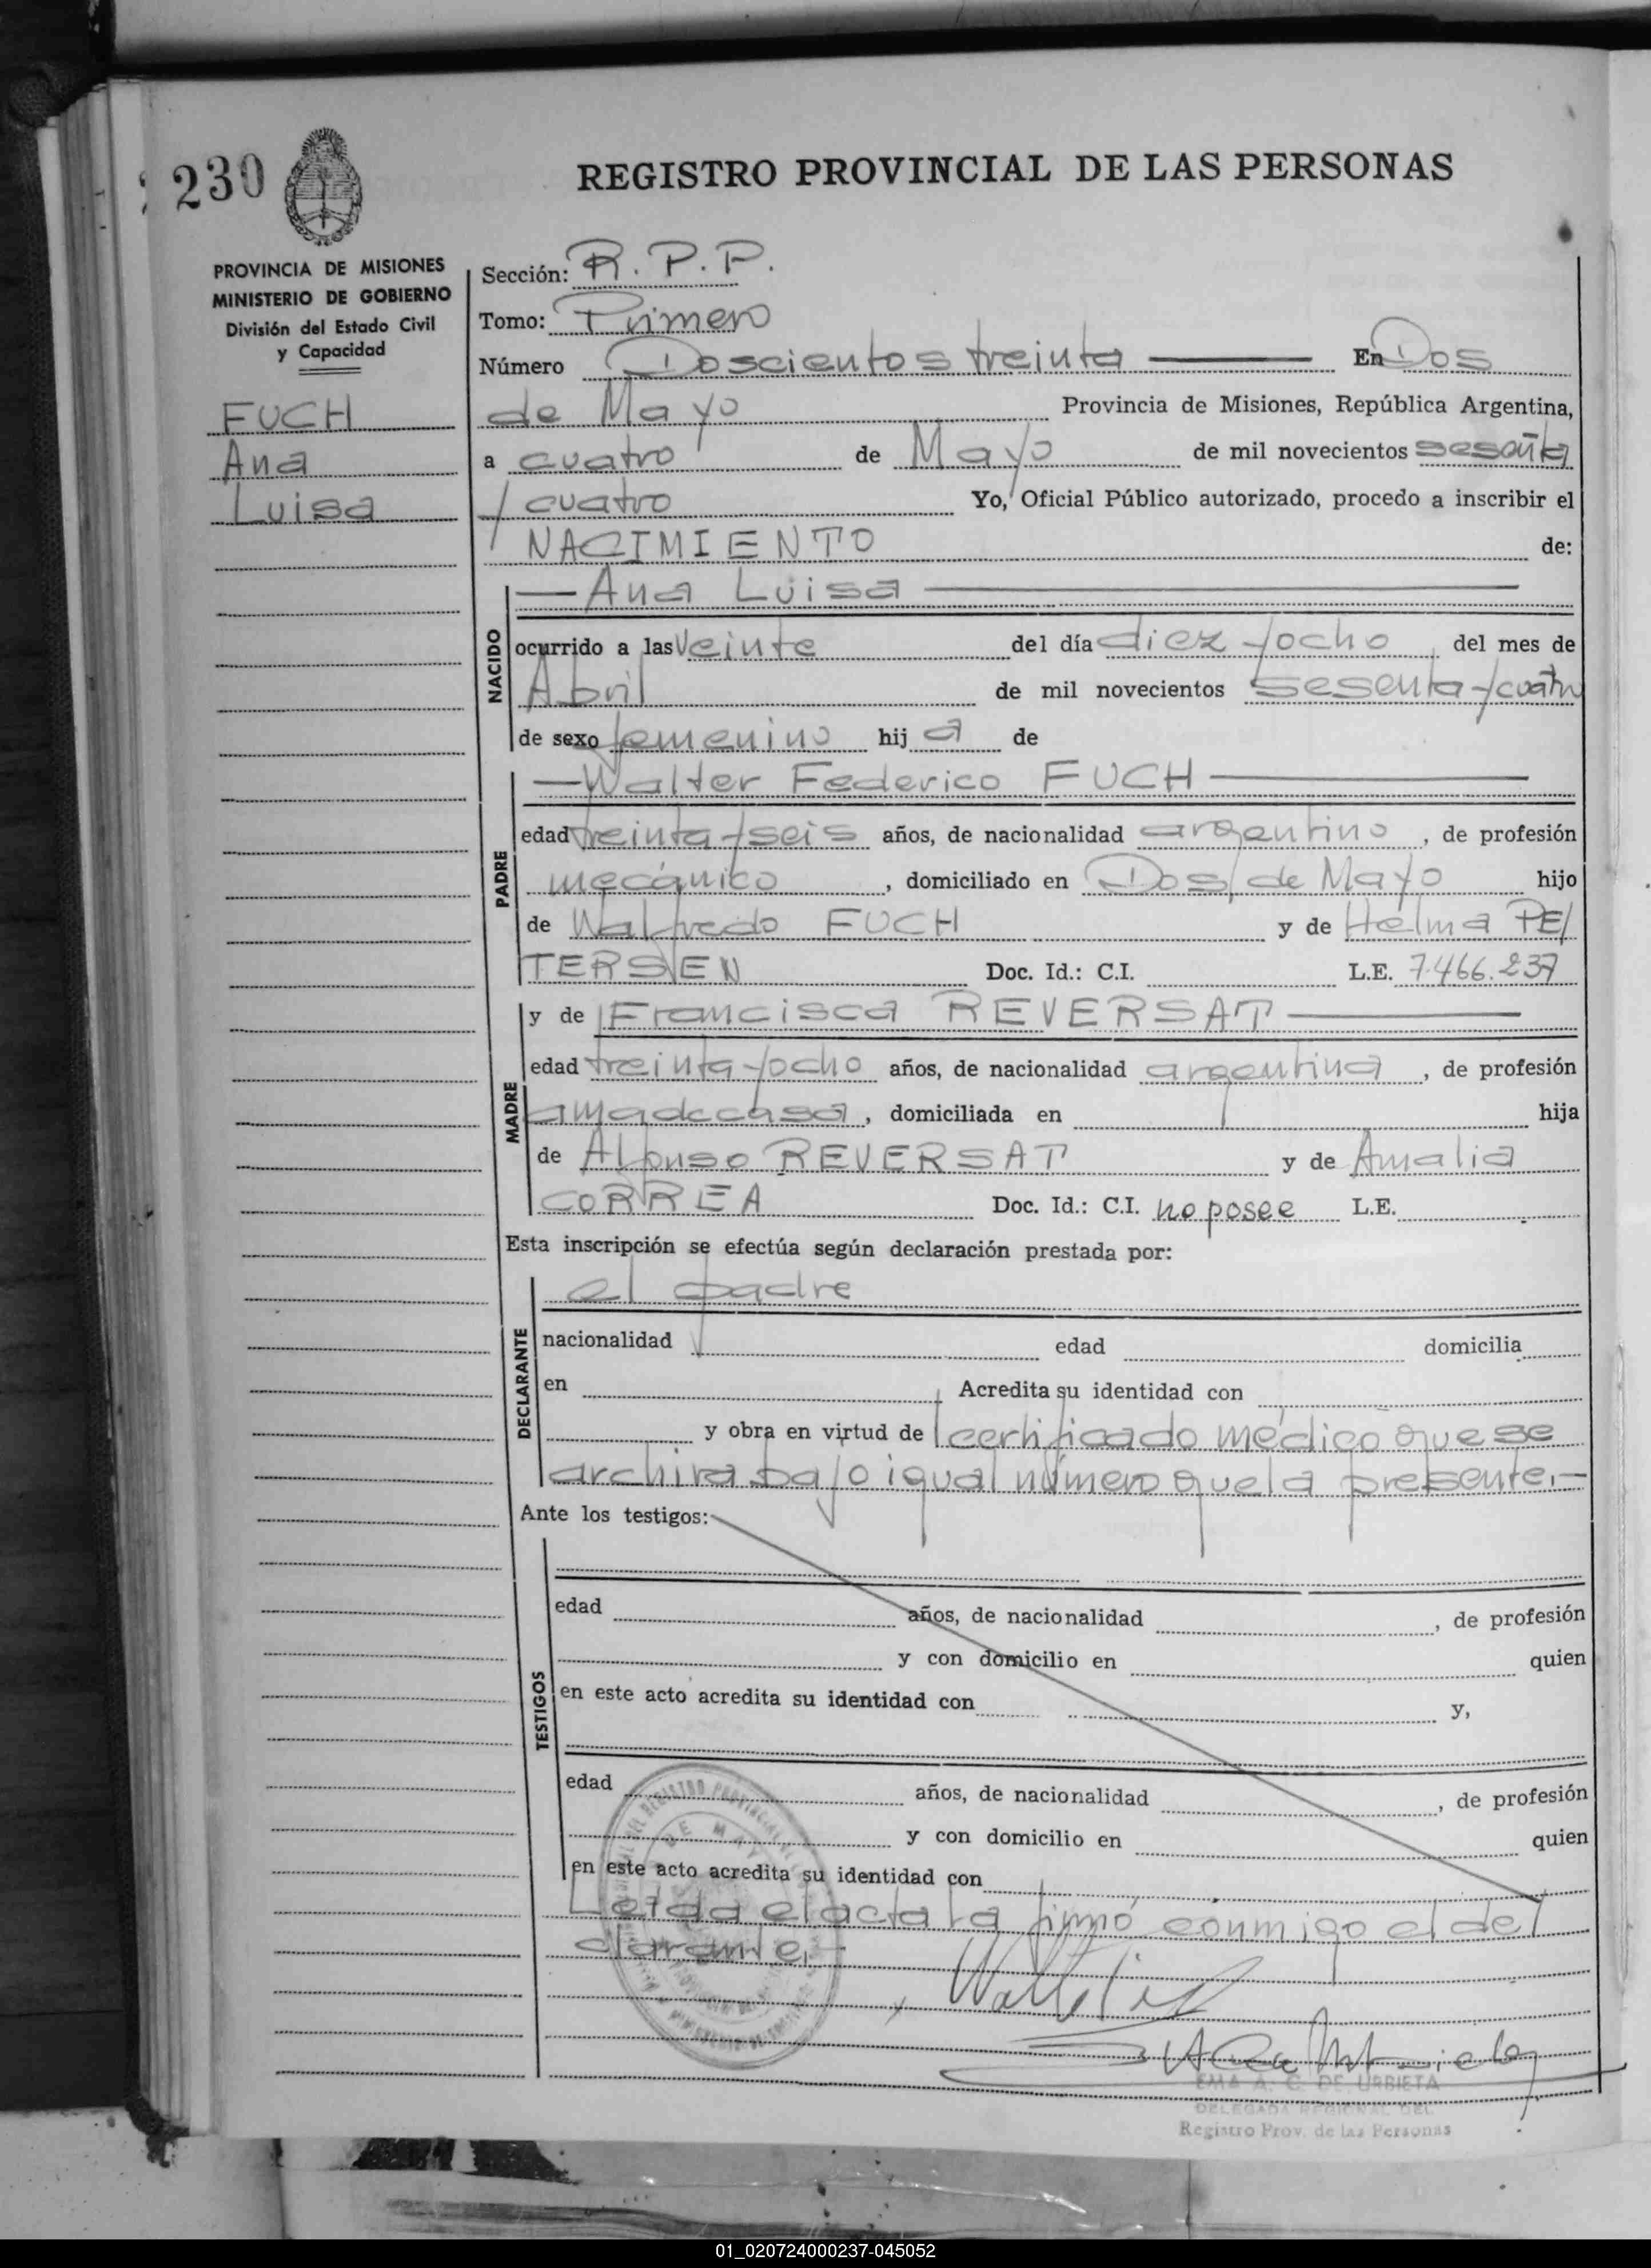 230
REGISTRO PROVINCIAL DE LAS PERSONAS
PROVINCIA DE MISIONES
MINISTERIO DE GOBIERNO
División del Estado Civil
y Capacidad
FUCH
Ana
Luisa
Sección: R. P. P.
Tomo: Primero
Número Doscientos treinta En Dos
de Mayo Provincia de Misiones, República Argentina,
a cuatro de Mayo de mil novecientos sesenta
y cuatro Yo, Oficial Público autorizado, procedo a inscribir el
NACIMIENTO de:
NACIDO
— Ana Luisa —
ocurrido a las veinte del día diez y ocho del mes de
Abril de mil novecientos sesenta y cuatro
de sexo femenino hij a de
PADRE
— Walter Federico FUCH —
edad treinta y seis años, de nacionalidad argentino, de profesión
mecánico, domiciliado en Dos de Mayo hijo
de Walfredo FUCH y de Helma PE/
TERSEN Doc. Id.: C.I. L.E. 7.466.237
MADRE
y de Francisca REVERSAT —
edad treinta y ocho años, de nacionalidad argentina, de profesión
ama de casa, domiciliada en hija
de Alfonso REVERSAT y de Amalia
CORREA Doc. Id.: C.I. no posee L.E.
Esta inscripción se efectúa según declaración prestada por:
DECLARANTE
el padre
nacionalidad edad domicilia
en Acredita su identidad con
y obra en virtud de certificado médico que se
archiva bajo igual número que la presente.—
Ante los testigos:
TESTIGOS
edad años, de nacionalidad , de profesión
y con domicilio en quien
en este acto acredita su identidad con y,
edad años, de nacionalidad , de profesión
y con domicilio en quien
en este acto acredita su identidad con
Leída el acta la firmó conmigo el de/
clarante.—
EMA A. C. DE URBIETA
DELEGADA REGIONAL DEL
Registro Prov. de las Personas
01_020724000237-045052